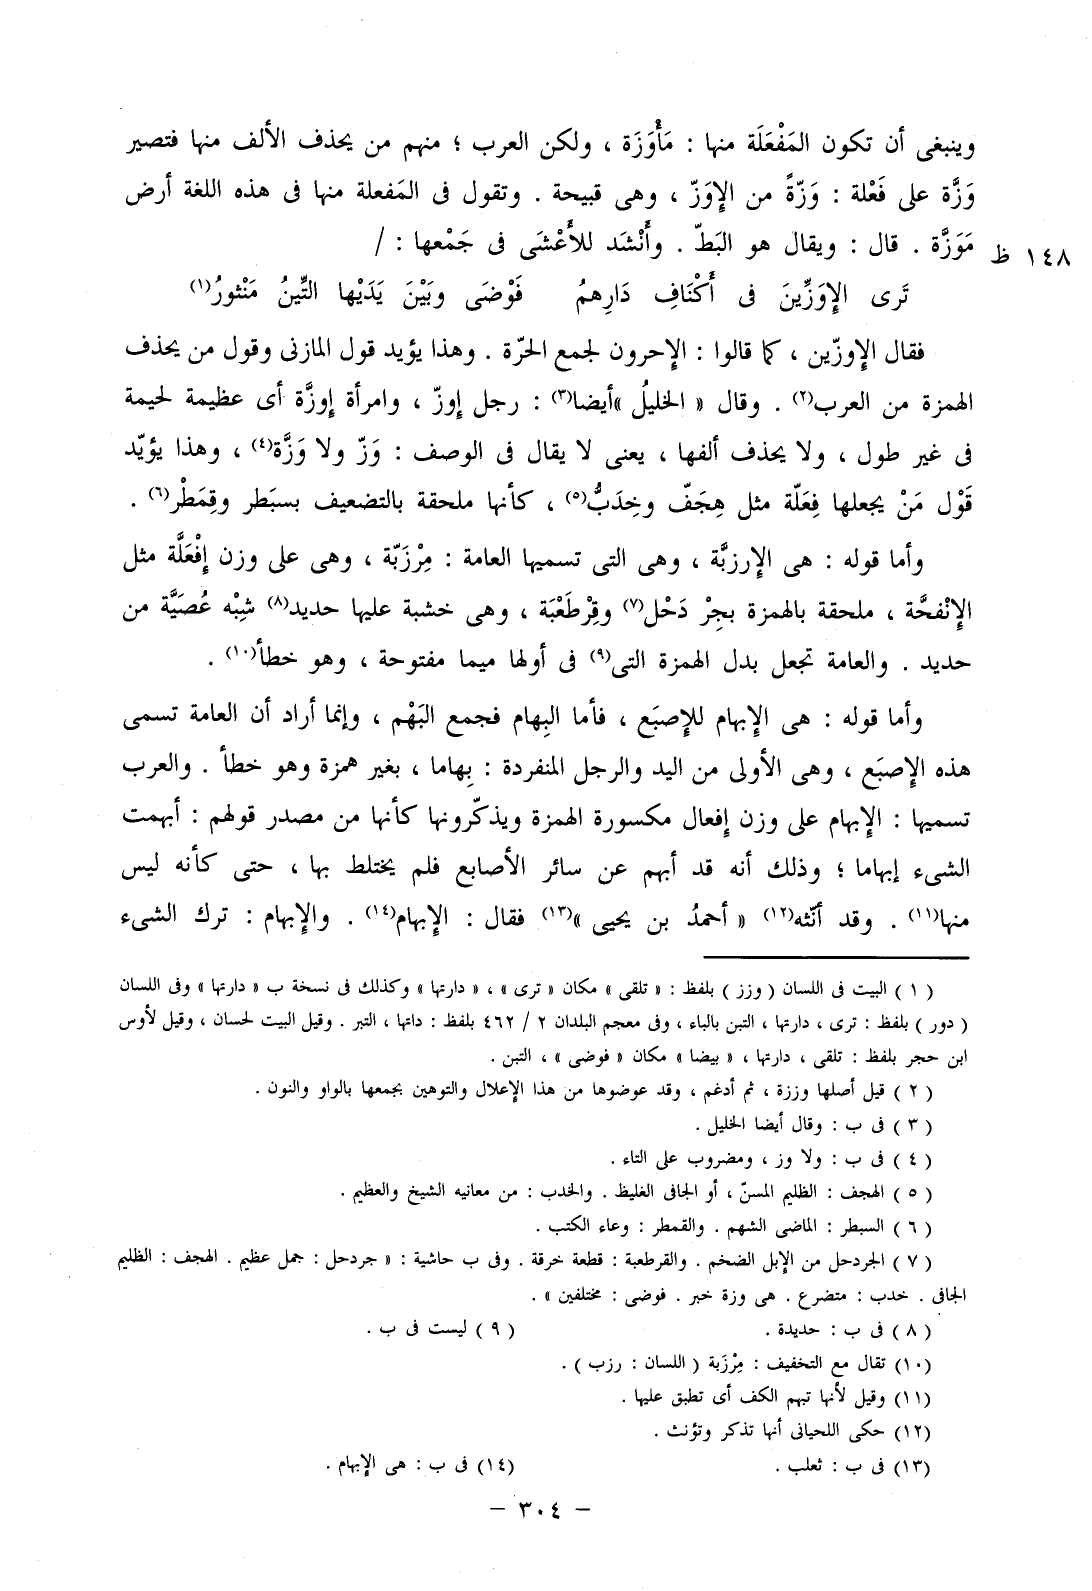 وينبغى أن تكون المَفْعَلَة منها : مَأْوَزَة ، ولكن العرب ؛ منهم من يحذف الألف منها فتصير
وَزَّة على فَعْلة : وَزّةً من الإِوَزّ ، وهى قبيحة . وتقول فى المَفعلة منها فى هذه اللغة أرض
مَوَزَّة . قال : ويقال هو البَطّ . وأَنْشَد للأَعْشَى فى جَمْعها : /
١٤٨ ظ
تَرى الإِوَزِّينَ فى أَكْنَافِ دَارِهمُ فَوْضَى وبَيْنَ يَدَيْها التِّينُ مَنْثورُ(١)
فقال الإِوزّين ، كما قالوا : الإِحرون لجمع الحرّة . وهذا يؤيد قول المازنى وقول من يحذف
الهمزة من العرب(٢) . وقال « الخليلُ »أيضا(٣) : رجل إِوزّ ، وامرأة إِوزَّة أى عظيمة لحيمة
فى غير طول ، ولا يحذف ألفها ، يعنى لا يقال فى الوصف : وَزّ ولا وَزَّة(٤) ، وهذا يؤيّد
قَوْل مَنْ يجعلها فِعَلّة مثل هِجَفّ وخِدَبُّ(٥) ، كأنها ملحقة بالتضعيف بسبَطر وقِمَطْر(٦) .
وأما قوله : هى الإِرزبَّة ، وهى التى تسميها العامة : مِرْزَبّة ، وهى على وزن إِفْعَلَّة مثل
الإِنْفحَّة ، ملحقة بالهمزة بجِرْ دَحْل(٧) وقِرْطَعْبَة ، وهى خشبة عليها حديد(٨) شِبْه عُصَيَّة من
حديد . والعامة تجعل بدل الهمزة التى(٩) فى أولها ميما مفتوحة ، وهو خطأ(١٠) .
وأما قوله : هى الإِبهام للإِصبَع ، فأما البِهام فجمع البَهْم ، وإنما أراد أن العامة تسمى
هذه الإِصبَع ، وهى الأولى من اليد والرجل المنفردة : بِهاما ، بغير همزة وهو خطأ . والعرب
تسميها : الإِبهام على وزن إِفعال مكسورة الهمزة ويذكّرونها كأنها من مصدر قولهم : أبهمت
الشىء إبهاما ؛ وذلك أنه قد أبهم عن سائر الأصابع فلم يختلط بها ، حتى كأنه ليس
منها(١١) . وقد أنّثه(١٢) « أحمدُ بن يحيى »(١٣) فقال : الإِبهام(١٤) . والإِبهام : ترك الشىء
( ١ ) البيت فى اللسان ( وزز ) بلفظ : « تلقى » مكان « ترى » ، « دارتها » وكذلك فى نسخة ب « دارتها » وفى اللسان
( دور ) بلفظ : ترى ، دارتها ، التبن بالباء ، وفى معجم البلدان ٢ / ٤٦٢ بلفظ : داتها ، التبر . وقيل البيت لحسان ، وقيل لأوس
ابن حجر بلفظ : تلقى ، دارتها ، « بيضا » مكان « فوضى » ، التبن .
( ٢ ) قيل أصلها وززة ، ثم أدغم ، وقد عوضوها من هذا الإِعلال والتوهين بجمعها بالواو والنون .
( ٣ ) فى ب : وقال أيضا الخليل .
( ٤ ) فى ب : ولا وز ، ومضروب على التاء .
( ٥ ) الهجف : الظليم المسنّ ، أو الجافى الغليظ . والخدب : من معانيه الشيخ والعظيم .
( ٦ ) السبطر : الماضى الشهم . والقمطر : وعاء الكتب .
( ٧ ) الجردحل من الإِبل الضخم . والقرطعبة : قطعة خرقة . وفى ب حاشية : « جردحل : جمل عظيم . الهجف : الظليم
الجافى . خدب : متضرع . هى وزة خبر . فوضى : مختلفين » .
( ٨ ) فى ب : حديدة . ( ٩ ) ليست فى ب .
(١٠) تقال مع التخفيف : مِرْزَبة ( اللسان : رزب ) .
(١١) وقيل لأنها تبهم الكف أى تطبق عليها .
(١٢) حكى اللحيانى أنها تذكر وتؤنث .
(١٣) فى ب : ثعلب . (١٤) فى ب : هى الإِبهام .
– ٣٠٤ –